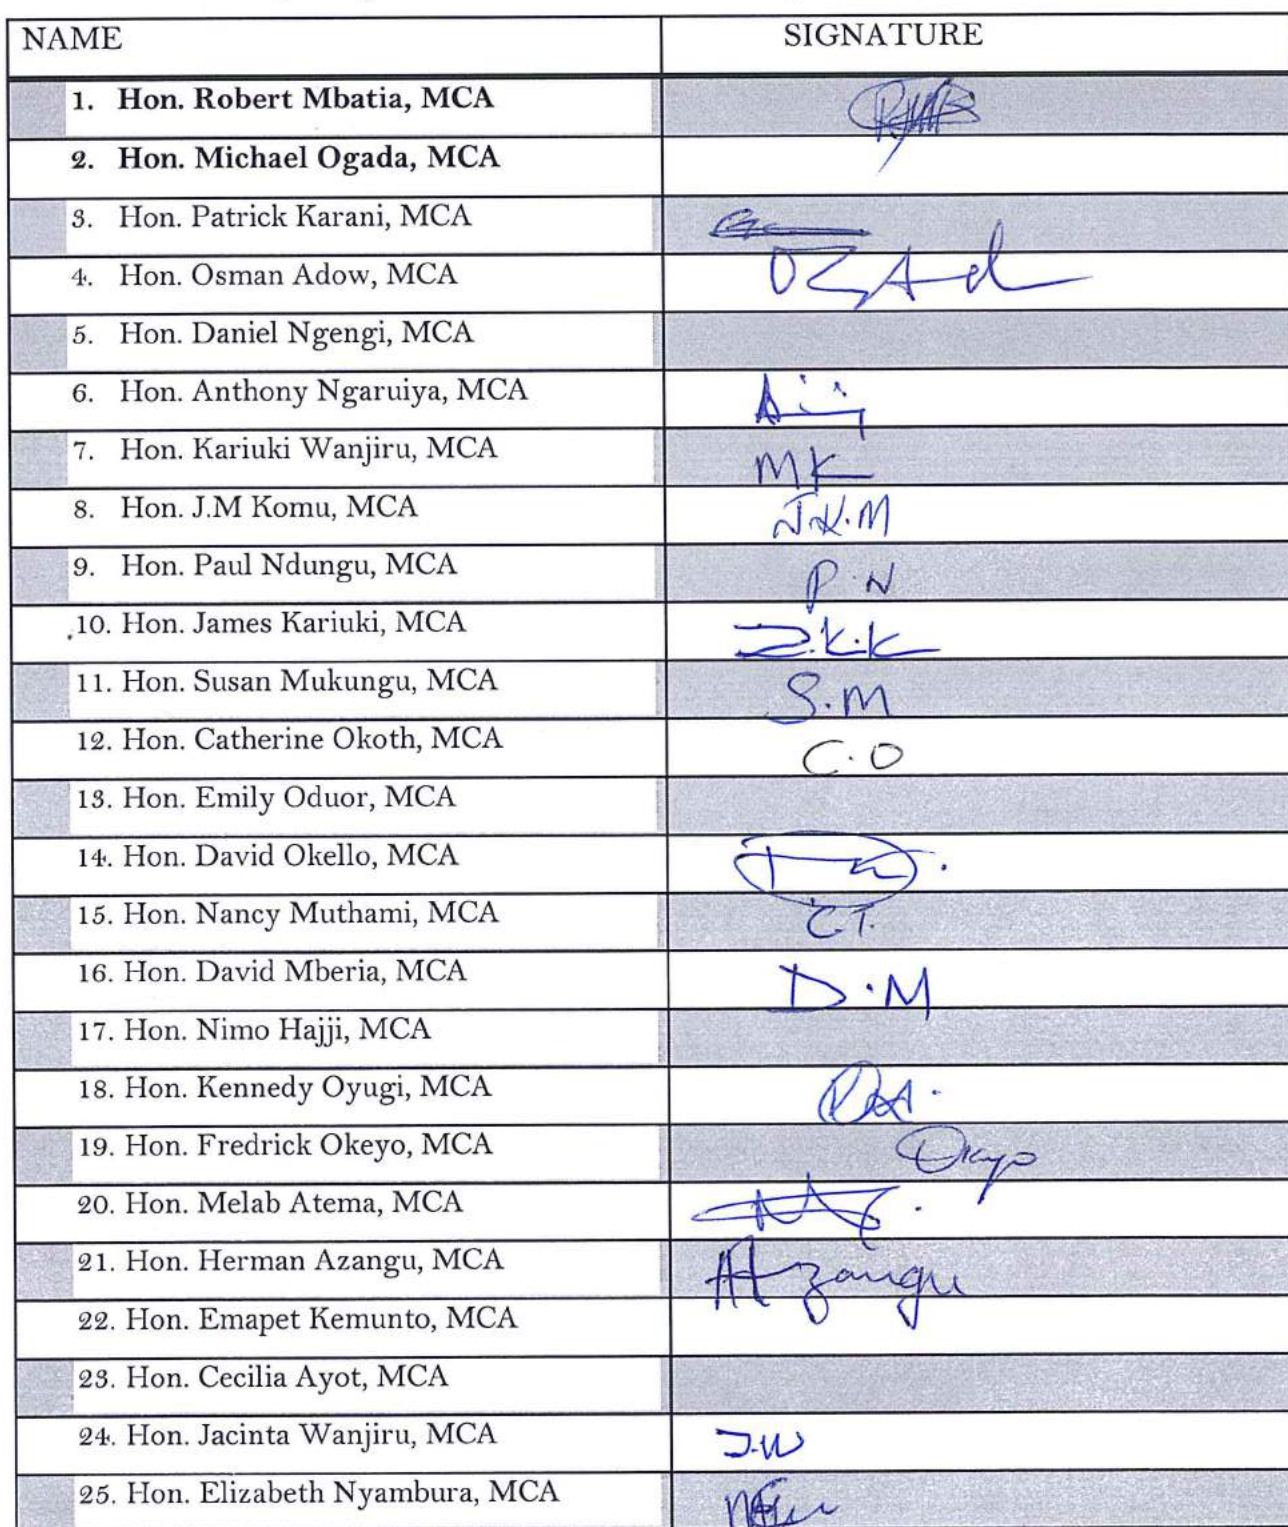 NAME SIGNATURE
1. Hon. Robert Mbatia, MCA
2. Hon. Michael Ogada, MCA
3. Hon. Patrick Karani, MCA
4. Hon. Osman Adow, MCA
5. Hon. Daniel Ngengi, MCA
6. Hon. Anthony Ngaruiya, MCA
7. Hon. Kariuki Wanjiru, MCA MK
8. Hon. J.M Komu, MCA J.K.M
9. Hon. Paul Ndungu, MCA P.N
10. Hon. James Kariuki, MCA J.K.K
11. Hon. Susan Mukungu, MCA S.M
12. Hon. Catherine Okoth, MCA C.O
13. Hon. Emily Oduor, MCA
14. Hon. David Okello, MCA
15. Hon. Nancy Muthami, MCA C.T.
16. Hon. David Mberia, MCA D.M
17. Hon. Nimo Hajji, MCA
18. Hon. Kennedy Oyugi, MCA
19. Hon. Fredrick Okeyo, MCA Okeyo
20. Hon. Melab Atema, MCA
21. Hon. Herman Azangu, MCA Azangu
22. Hon. Emapet Kemunto, MCA
23. Hon. Cecilia Ayot, MCA
24. Hon. Jacinta Wanjiru, MCA J.W
25. Hon. Elizabeth Nyambura, MCA